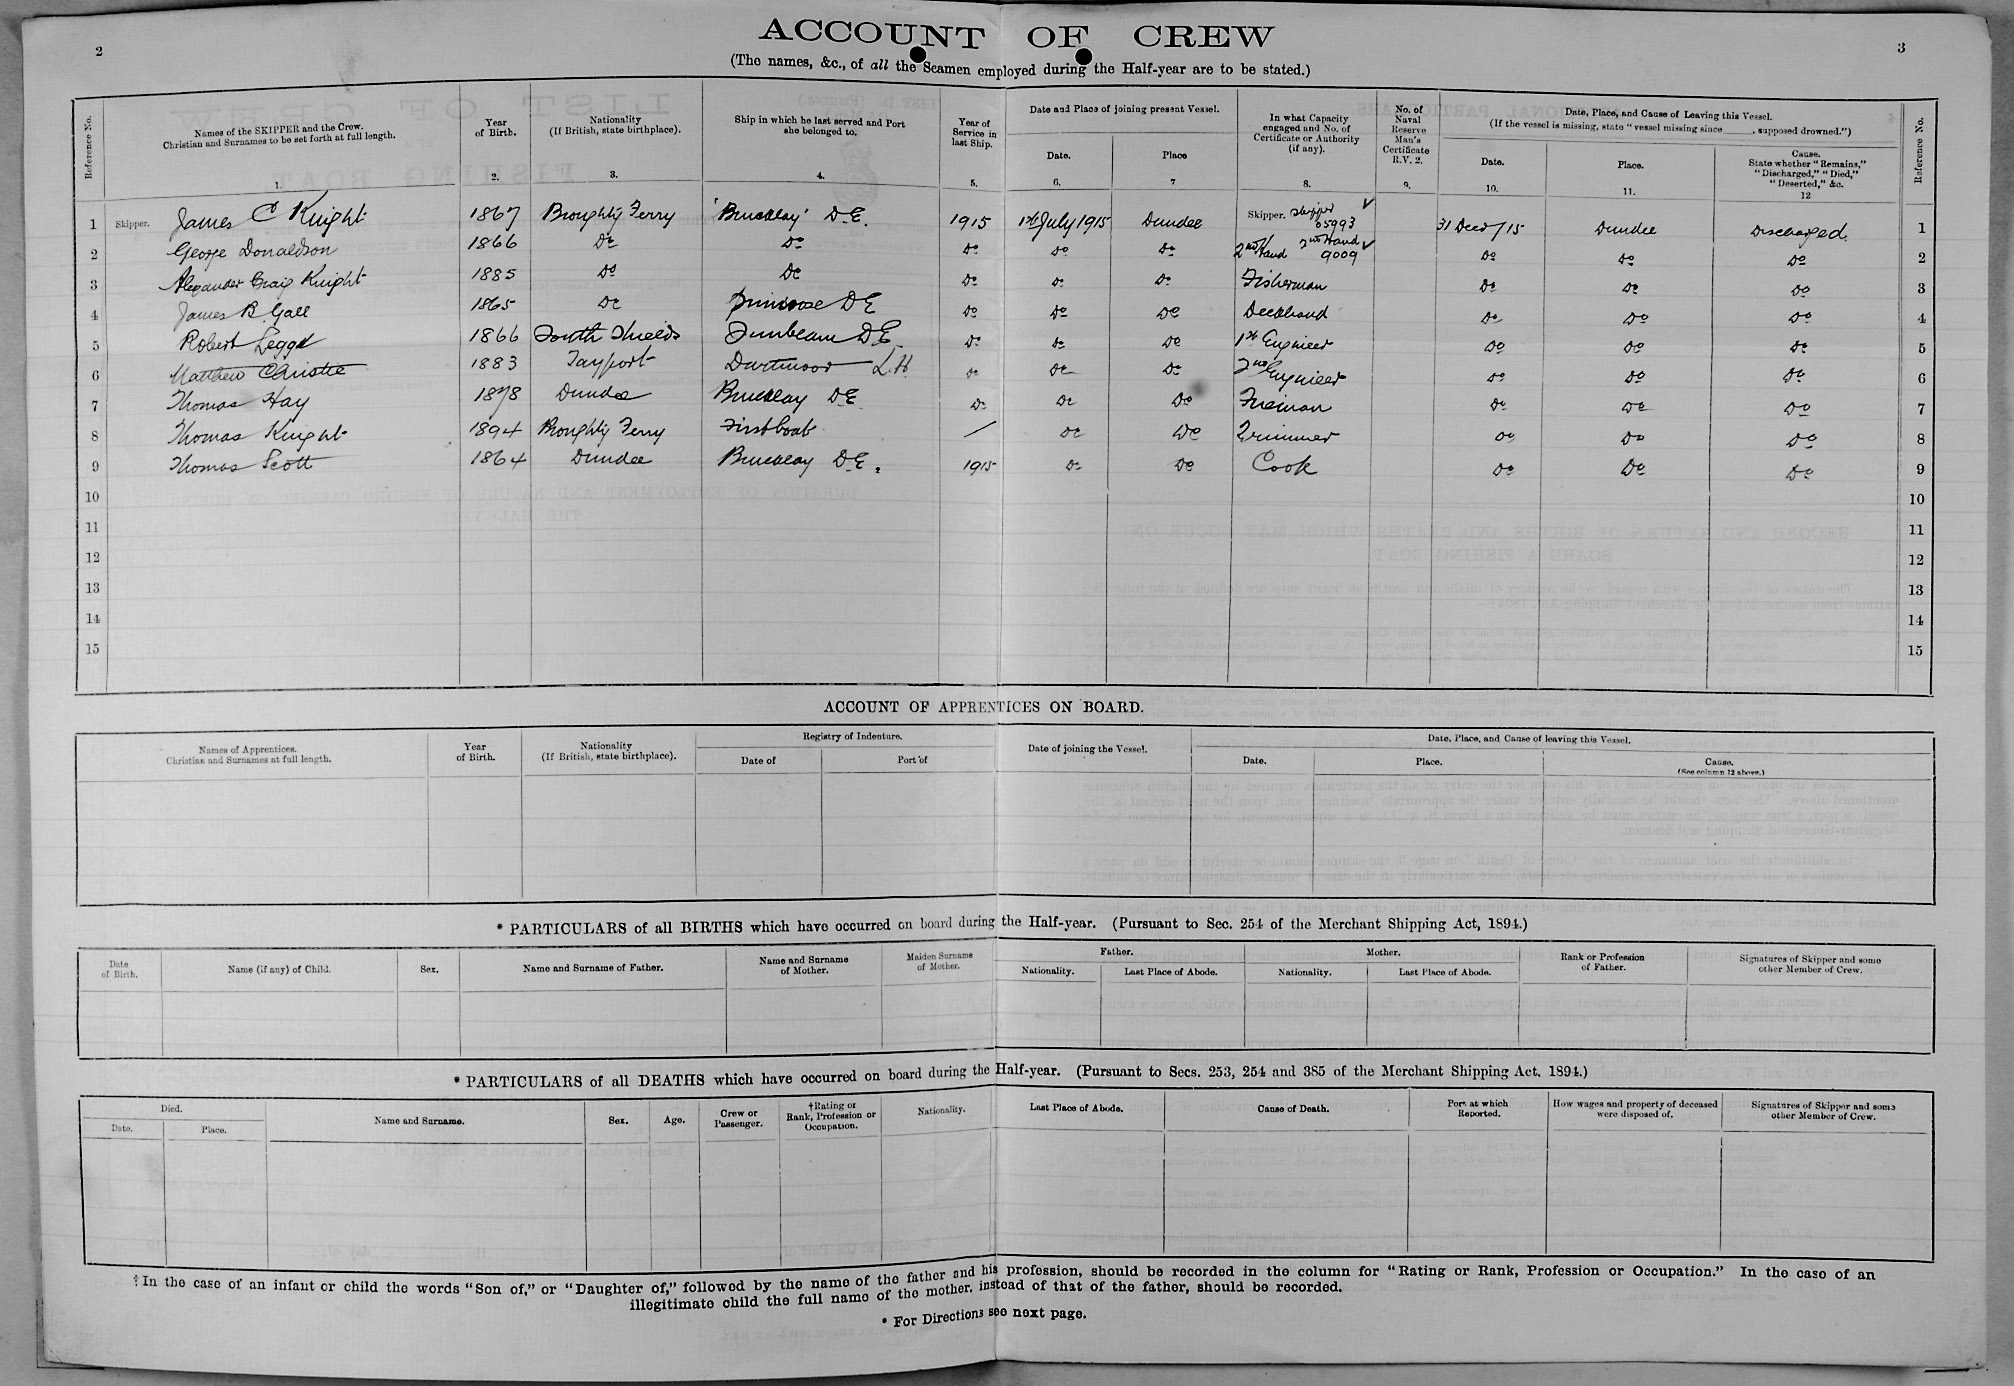 2
ACCOUNT OF CREW
3
(The names, &c., of all the Seamen employed during the Half-year are to be stated.)
Reference No.
Names of the SKIPPER and the Crew.
Christian and Surnames to be set forth at full length.
1.
Year
of Birth.
2.
Nationality
(If British, state birthplace).
3.
Ship in which he last served and Port
she belonged to.
4.
Year of
Service in
last Ship.
5.
Date and Place of joining present Vessel.
Date.
6.
Place
7
In what Capacity
engaged and No. of
Certificate or Authority
(if any).
8.
No. of
Naval
Reserve
Man's
Certificate
R.V. 2.
9.
Date, Place, and Cause of Leaving this Vessel.
(If the vessel is missing, state "vessel missing since____, supposed drowned.")
Date.
10.
Place.
11.
Cause.
State whether "Remains,"
"Discharged," "Died,"
"Deserted," &c.
12
Reference No.
1 Skipper. James C Knight 1867 Broughty Ferry 'Buccleuy' D.E. 1915 1st July 1915 Dundee Skipper. Skipper 05993 31 Decr/15 Dundee Discharged. 1
2 George Donaldson 1866 Do Do Do Do Do 2nd Hand 2nd Hand 9009 Do Do Do 2
3 Alexander Craig Knight 1885 Do Do Do Do Do Fisherman Do Do Do 3
4 James B. Gall 1865 Do Primrose D E Do Do Do Deckhand Do Do Do 4
5 Robert Legge 1866 South Shields Sunbeam D.E. Do Do Do 1st Engineer Do Do Do 5
6 Matthew Christie 1883 Tayport Dartmoor L.H. Do Do Do 2nd Engineer Do Do Do 6
7 Thomas Hay 1878 Dundee D.E. Do Do Do Fireman Do Do Do 7
8 Thomas Knight 1894 Broughty Ferry First boat / Do Do Trimmer Do Do Do 8
9 Thomas Scott 1864 Dundee D.E. 1915 Do Do Cook Do Do Do 9
10 10
11 11
12 12
13 13
14 14
15 15
ACCOUNT OF APPRENTICES ON BOARD.
Names of Apprentices.
Christian and Surnames at full length.
Year
of Birth.
Nationality
(If British, state birthplace).
Registry of Indenture.
Date of
Port of
Date of joining the Vessel.
Date, Place, and Cause of leaving this Vessel.
Date.
Place.
Cause.
(See column 12 above.)
* PARTICULARS of all BIRTHS which have occurred on board during the Half-year. (Pursuant to Sec. 254 of the Merchant Shipping Act, 1894.)
Date
of Birth.
Name (if any) of Child.
Sex.
Name and Surname of Father.
Name and Surname
of Mother.
Maiden Surname
of Mother.
Father.
Nationality.
Last Place of Abode.
Mother.
Nationality.
Last Place of Abode.
Rank or Profession
of Father.
Signatures of Skipper and some
other Member of Crew.
* PARTICULARS of all DEATHS which have occurred on board during the Half-year. (Pursuant to Secs. 253, 254 and 385 of the Merchant Shipping Act, 1894.)
Died.
Date.
Place.
Name and Surname.
Sex.
Age.
Crew or
Passenger.
†Rating or
Rank, Profession or
Occupation.
Nationality.
Last Place of Abode.
Cause of Death.
Port at which
Reported.
How wages and property of deceased
were disposed of.
Signatures of Skipper and some
other Member of Crew.
†In the case of an infant or child the words "Son of," or "Daughter of," followed by the name of the father and his profession, should be recorded in the column for "Rating or Rank, Profession or Occupation." In the case of an
illegitimate child the full name of the mother, instead of that of the father, should be recorded.
* For Directions see next page.